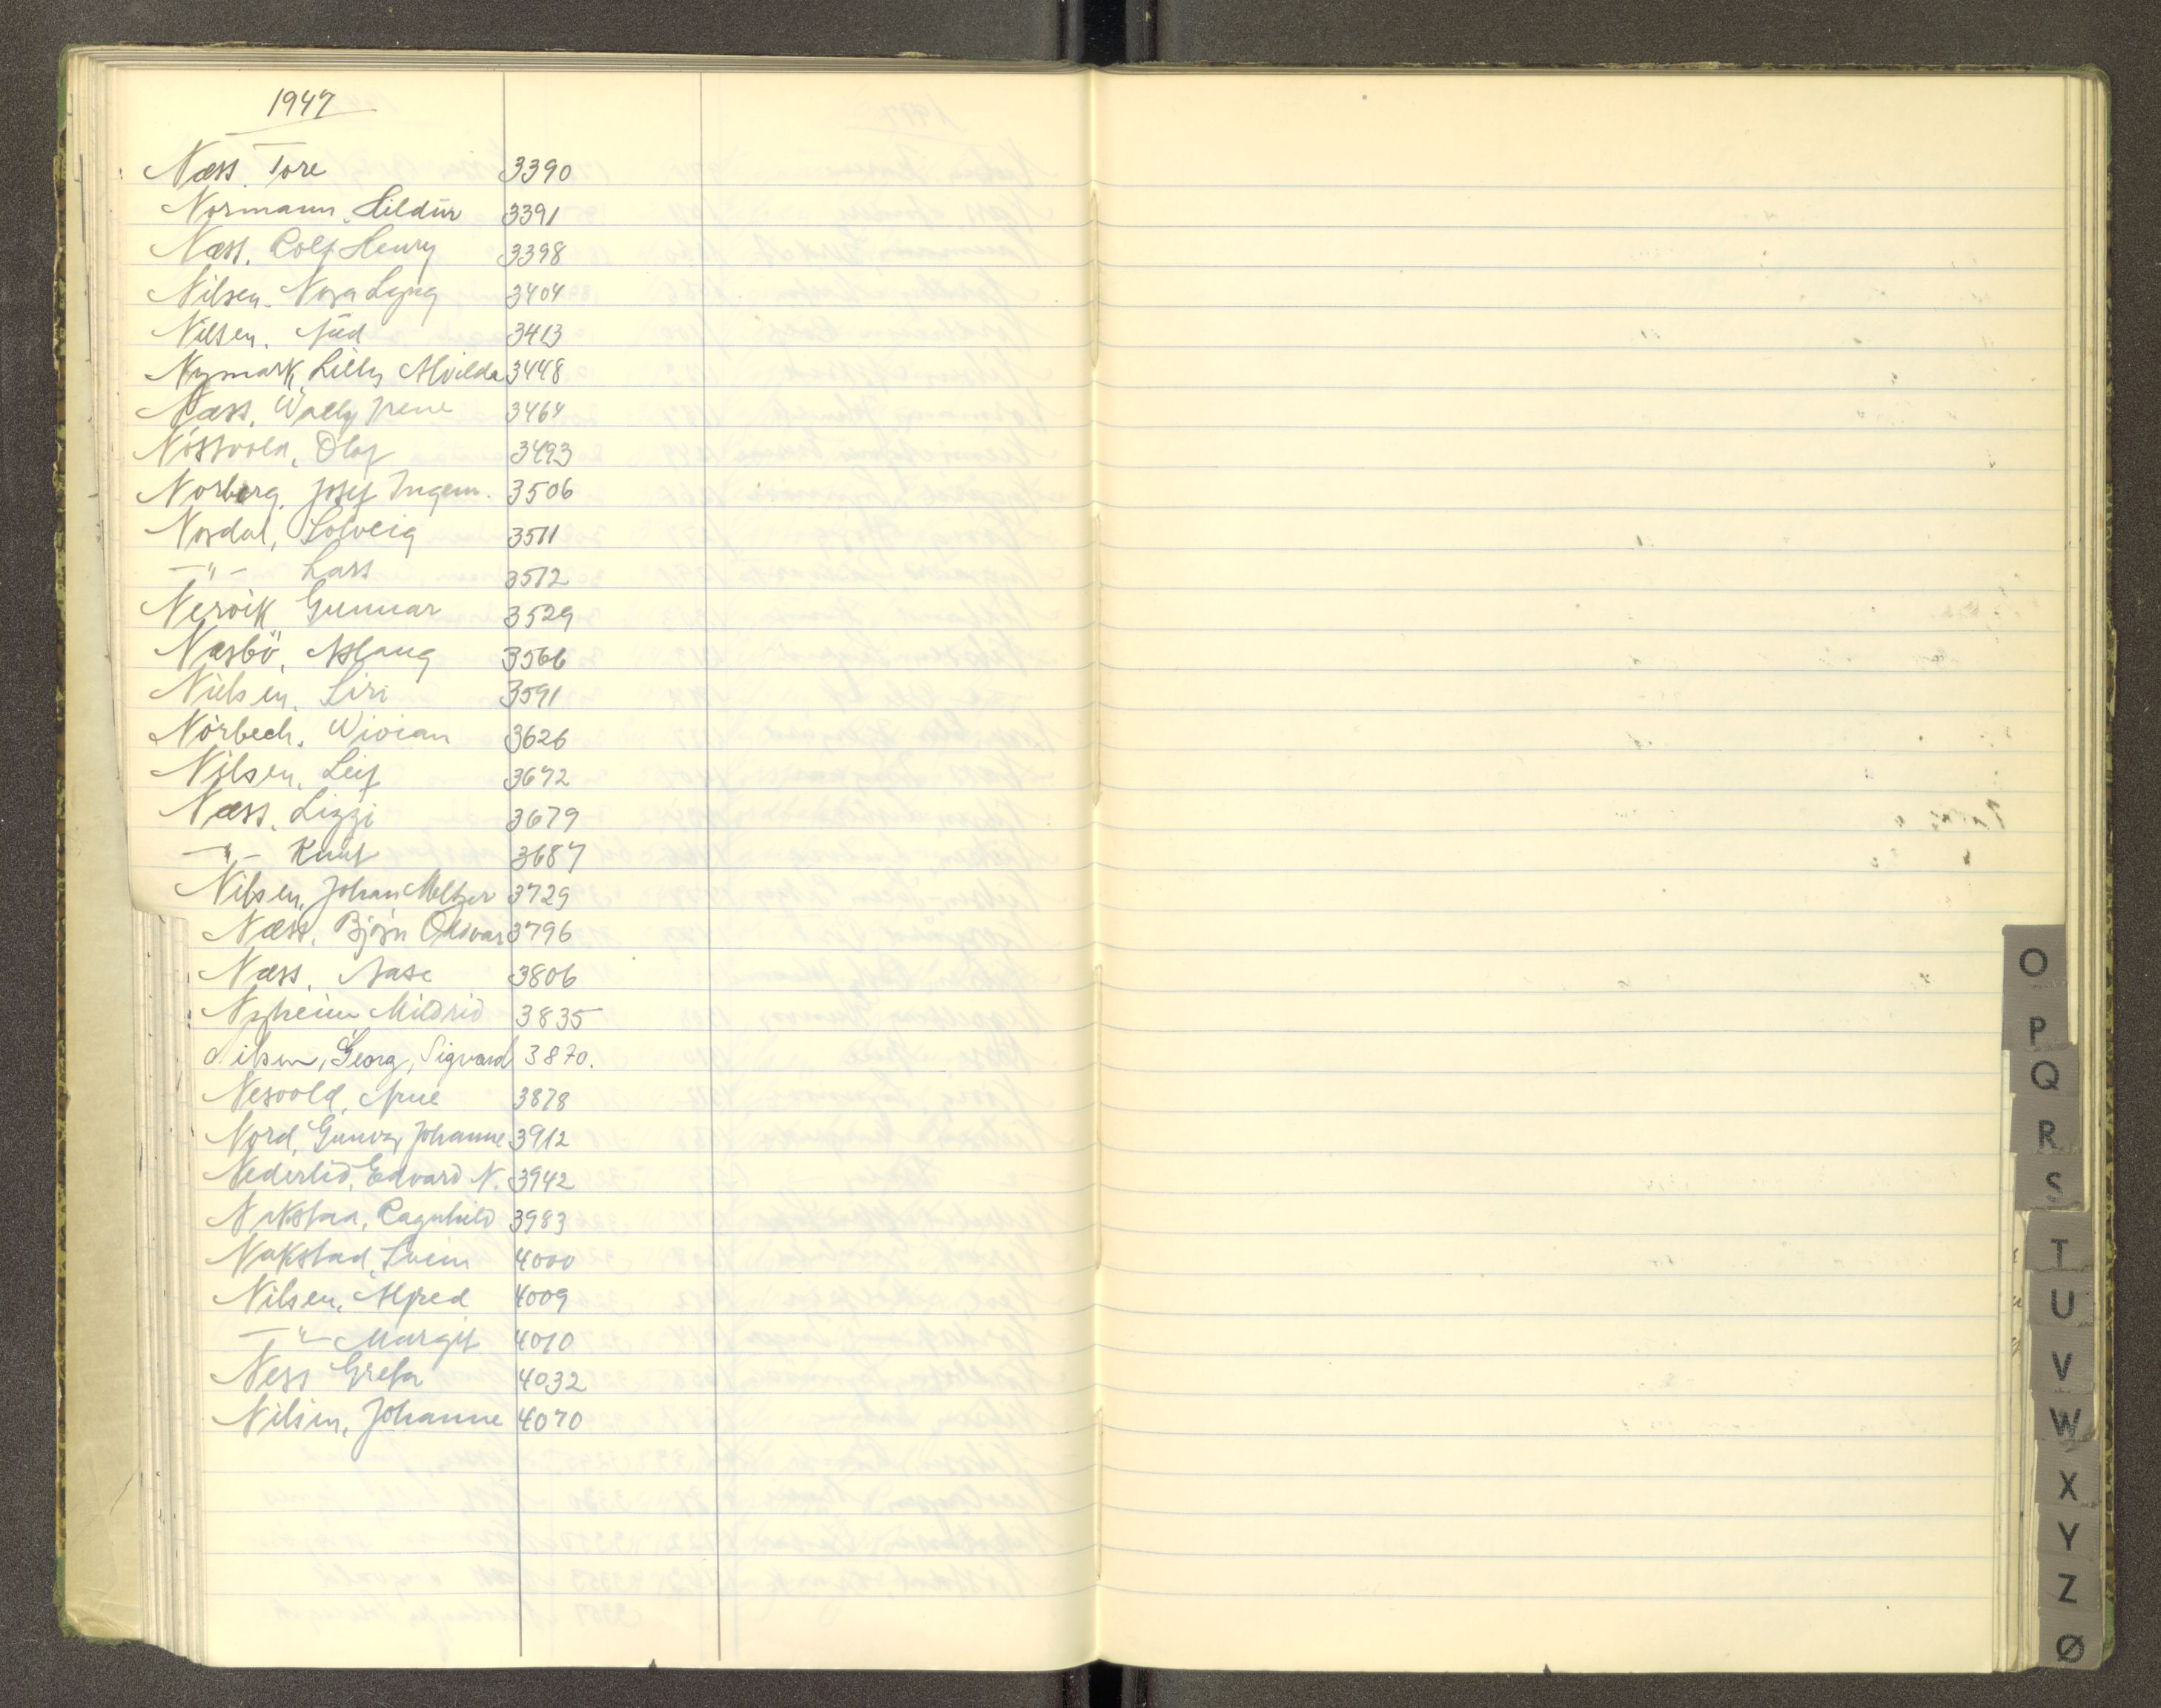 1947
Næss. Tore 3390
Normann, Hildur 3391
Næss, Rolf Henry 3398
Nilsen. Nora Lyng 3404
Nilsen. Aud 3413
Nymark, Lilly Alvilda 3448
Næss, Wally Irene 3464
Nössvold, Olaf 3493
Norberg, Josef Ingem. 3506
Nordal, Solveig 3511
—"— Lars 3512
Nervik Gunnar 3529
Næsbö, Aslaug 3566
Nielsen, Siri 3591
Nörbech, Wivian 3626
Nilsen, Leif 3672
Næss, Lizzi 3679
—"— Knut 3687
Nilsen, Johan Meltzer 3729
Næss, Björn Oldvar 3796
Næss, Aase 3806
Nyheim Mildrid 3835
Nilsen, Georg, Sigvard 3870.
Nesvold, Arne 3878
Nord, Gunvor Johanne 3912
Nederlid, Edvard N. 3942
Nakstad, Ragnhild 3983
Nakstad, Svein 4000
Nilsen, Alfred 4009
—"— Margit 4010
Ness Greta 4032
Nilsen, Johanne 4070
O
P
Q
R
S
T
U
V
W
X
Y
Z
Ø